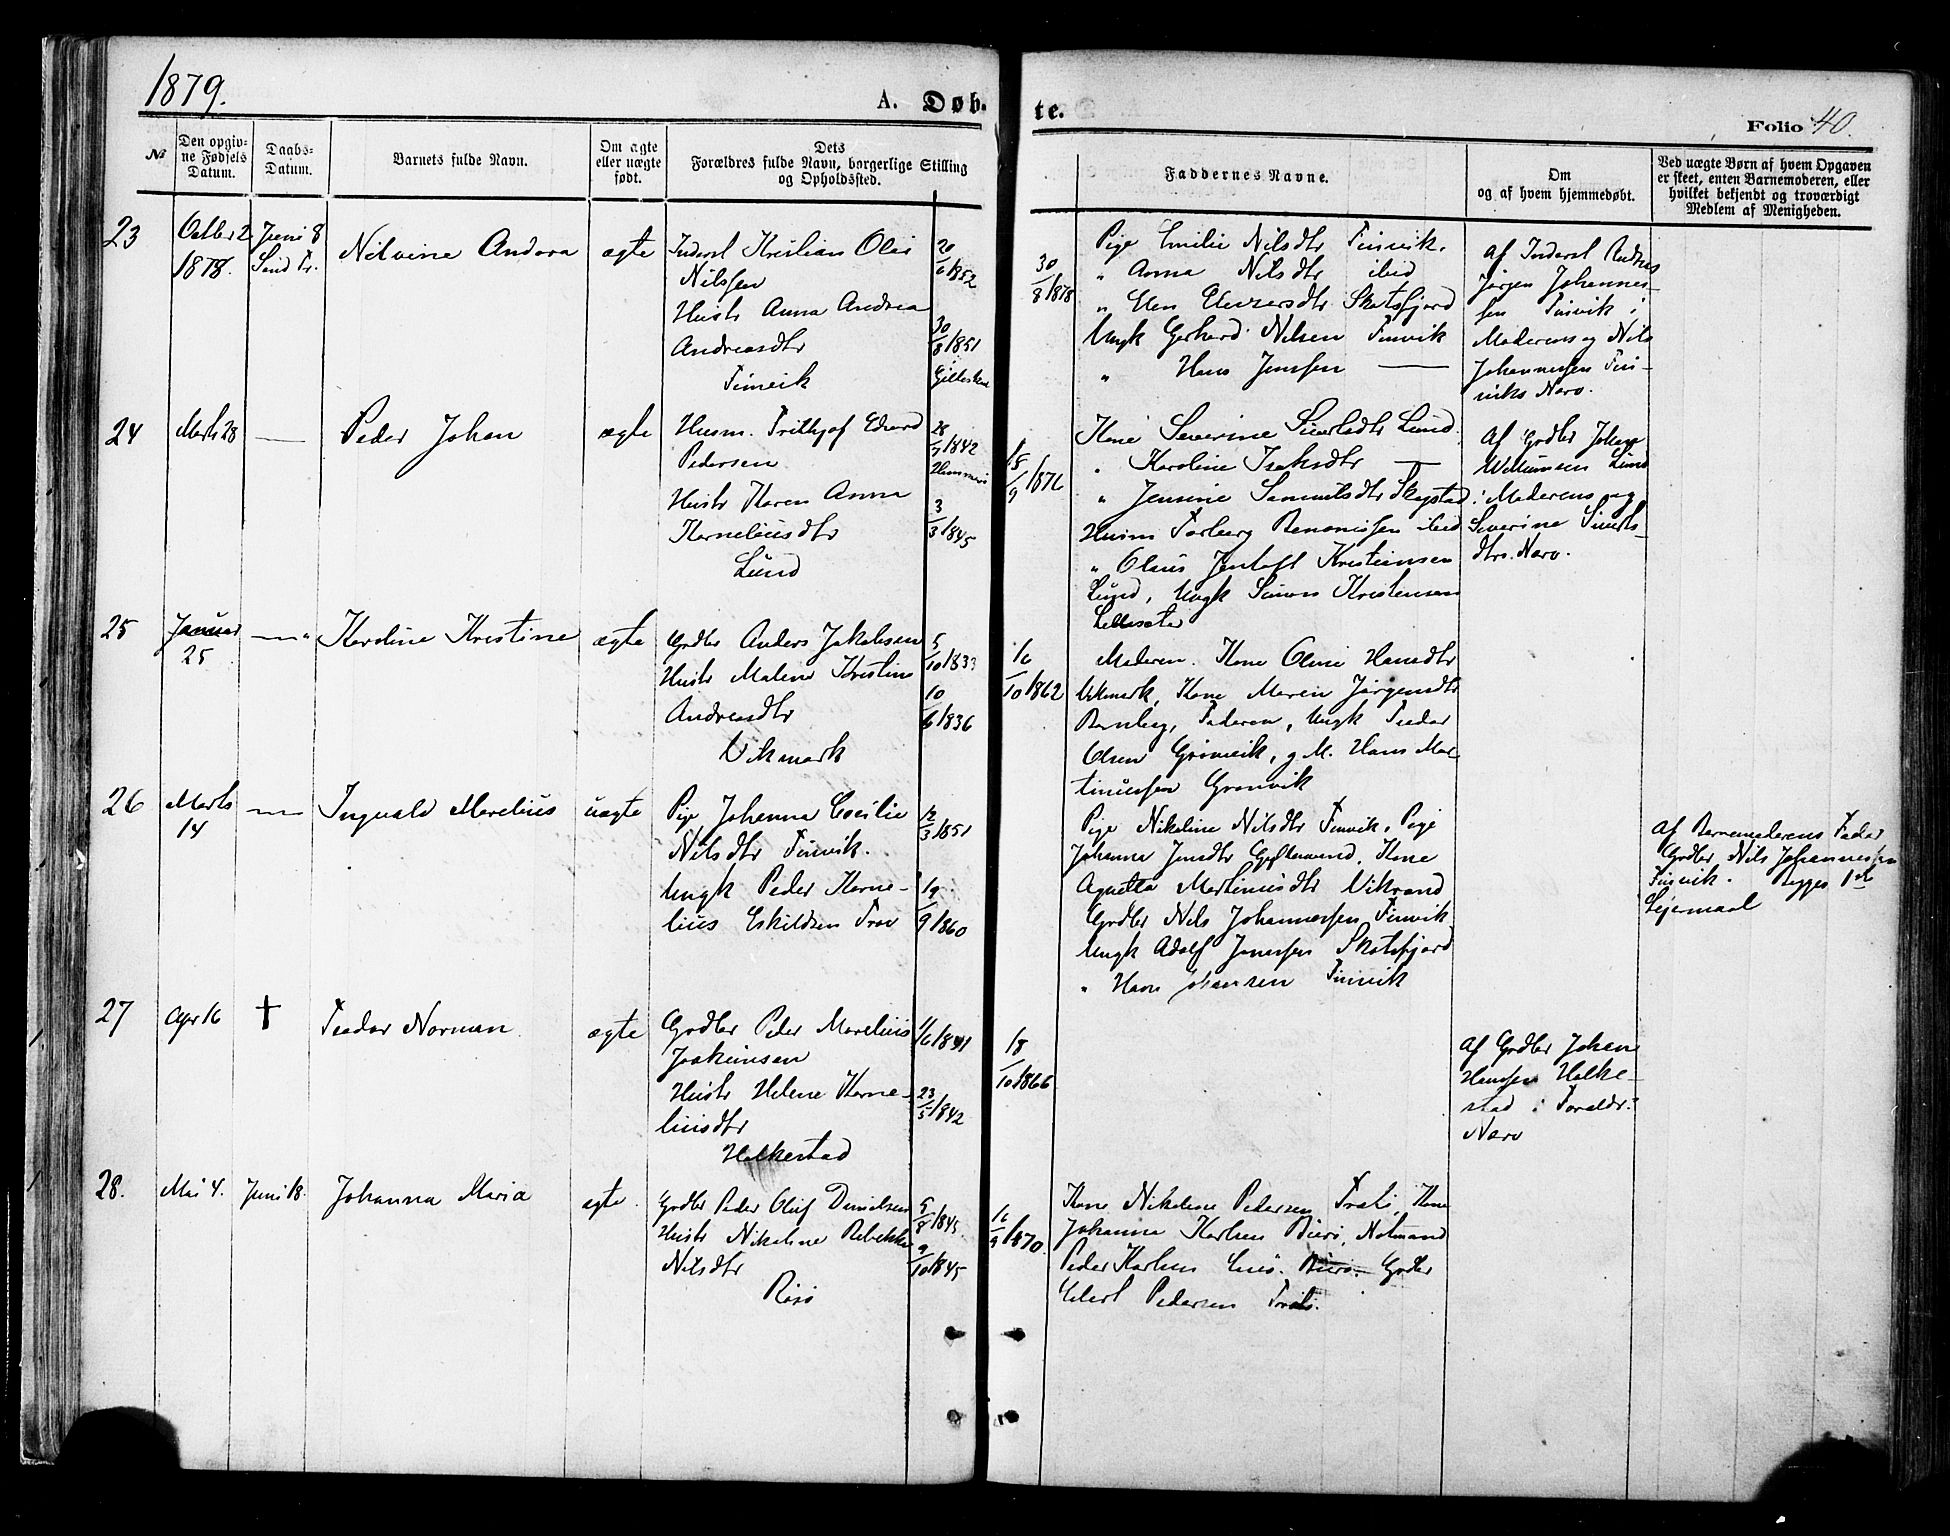 1879.
A. Døb.
te.
Folio 40.
№
Den opgiv-
ne Fødsels
Datum.
Daabs-
Datum.
Barnets fulde Navn.
Om ægte
eller uægte
født.
Dets
Forældres fulde Navn, borgerlige Stilling
og Opholdssted.
Faddernes Navne.
Om
og af hvem hjemmedøbt.
Ved uægte Børn af hvem Opgaven
er skeet, enten Barnemoderen, eller
hvilket bekjendt og troværdigt
Medlem af Menigheden.
23
Octbr 2
1878.
Juni 8
Nilvine Andora
ægte
Inderst Kristian Olai
Nilssen
Hustr Anna Andrea
Andreasdtr
Finvik
20/6 1852
30/8 1851
Gilleskaal
30/8 1878
Pige Emilie Nilsdtr Finvik.
" Anna Nilsdtr ibid
" Elen Eliezersdtr Skotsfjord
Ungk Gerhard Nilsen Finvik
" Hans Jenssen —
Af Inderst
Jørgen Johannes-
sen Finvik i
Moderens og Nils
Johannessen Fin-
viks Narv.
24
Marts 28
—
Peder Johan
ægte
Husm. Frithjof Edvard
Pedersen
Hustr Karen Anna
Korneliusdtr
Lund
28/7 1842
3/3 1845
18/9 1876
Kone Severine Sivertsdtr Lund
" Karoline Isaksdtr —
" Jensine Samuelsdtr Skogstad
Husm Torberg Benonissen ibid
" Olaus Jentoft Kristiansen
Lund, Ungk Simon Kristensen
Af Grdbr Johan
Willumsen Lund
i Moderens og
Severine Siverts-
dtrs. Narv.
25
Januar
25
— "
Karoline Kristine
ægte
Grdbr Anders Jakobsen
Hustr Malene Kristine
Andreasdtr
Vikmark
5/10 1833
10/6 1836
16/10 1862
Moderen. Kone Oline Hansdtr
Vikmark, Kone Maren Jørgensdtr
Faderen, Ungk Teodor
Olsen Grönvik, g M. Hans Mar-
tinussen Grönvik
26
Marts
14
—
Ingvald Marelius
uægte
Pige Johanna Cecilie
Nilsdtr Finvik.
Ungk Peder Korne-
lius Eskildsen
12/3 1851
19/9 1860
Pige Nikoline Nilsdtr Finvik, Pige
Johanna Jensdtr Kone
Agnetta Martinusdtr Vikrand
Grdbr Nils Johannessen Finvik
Ungk Adolf Jenssen Skotsfjord
" Hans Johansen Finvik
Af Barnemoderens Fader
Grdbr, Nils Johannessen
Finvik. Begges 1ste
Lejermaal
27
Apr 16
†
Teodor Norman
ægte
Grdbr Peder Marelius
Joakimsen
Hustr Helene Korne-
liusdtr
Holkestad
1/6 1841
23/5 1842
18/10 1866
Af Grdbr Johan
Hanssen Holke-
stad i Foraldr.
Narv
28.
Mai 4.
Juni 18.
Johanna Maria
ægte
Grdbr Peder Oluf Danielsen
Hustr Nikoline Rebekka
Nilsdtr
Røsø
5/8 1845.
9/10 1845
16/9 1870
Kone Nikoline Pedersen Kone
Johanna Karlsen Notmand
Peder Karlsen Grdbr
Edert Pedersen